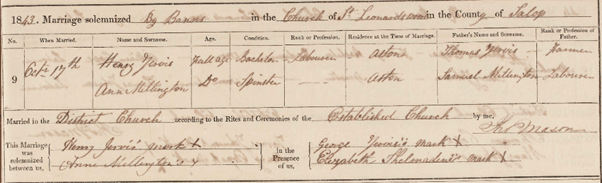 1843. Marriage solemnized By Banns in the Church of St Leonards in the County of Salop
No. When Married. Name and Surname. Age. Condition. Rank or Profession. Residence at the Time of Marriage. Father's Name and Surname. Rank or Profession of Father.
9 Octr 17th Henry Jervis Full age Bachelor Labourer Aston Thomas Jervis Farmer
Ann Millington Do Spinster — Aston Samuel Millington Labourer
Married in the District Church according to the Rites and Ceremonies of the Established Church by me,
Mason
This Marriage was solemnized between us, Henry Jervis's mark X
Anne Millington's X
in the Presence of us, George Jervis's mark X
Elizabeth mark X